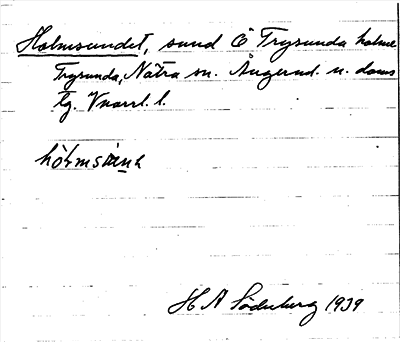 Holmsundet, sund Ö Trysunda holme
Trysunda, Nätra sn. Ångerml. n. doms
tg. Vnorrl. l.
hólmsùnḍ
H A Söderberg 1939